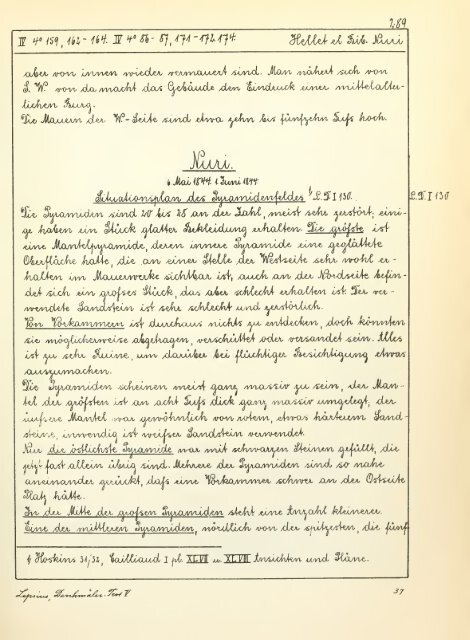 289
IV 4º 159, 162-164. IV 4º 86-87, 171-172. 174. Hellet el Bib. Nuri
aber von innen wieder vermauert sind. Man nähert sich von
S. W von da macht das Gebäude den Eindruck einer mittelalter-
lichen Burg.
Die Mauern der W-Seite sind etwa zehn bis fünfzehn Fuſs hoch.
Nuri.
6 Mai 1844. 1 Juni 1844
Situationsplan des Pyramidenfeldes ¹⁾ L. D. I 130. L. D. I 130
Die Pyramiden sind 20 bis 25 an der Zahl, meist sehr zerstört; eini-
ge haben ein Stück glatter Bekleidung erhalten. Die gröſste ist
eine Mantelpyramide, deren innere Pyramide eine geglättete
Oberfläche hatte, die an einer Stelle der Westseite sehr wohl er-
halten im Mauerwerke sichtbar ist, auch an der Nordseite befin-
det sich ein groſses Stück, das aber schlecht erhalten ist. Der ver-
wendete Sandstein ist sehr schlecht und zerstörlich.
Von Vorkammern ist durchaus nichts zu entdecken, doch könnten
sie möglicherweise abgehagen, verschüttet oder versandet sein. Alles
ist zu sehr Ruine, um darüber bei flüchtiger Besichtigung etwas
auszumachen.
Die Pyramiden scheinen meist ganz massiv zu sein, der Man-
tel der gröſsten ist an acht Fuſs dick ganz massiv umgelegt, der
äuſsere Mantel war gewöhnlich von rotem, etwas härterem Sand-
steine, inwendig ist weiſser Sandstein verwendet.
Nur die östlichste Pyramide war mit schwarzen Steinen gefüllt, die
jetzt fast allein übrig sind. Mehrere der Pyramiden sind so nahe
aneinander gerückt, daſs eine Vorkammer schwer an der Ostseite
Platz hätte.
In der Mitte der groſsen Pyramiden steht eine Anzahl kleinerer.
Eine der mittleren Pyramiden, nördlich von der spitzesten, die fünf
¹⁾ Hoskins 31/32, Cailliaud I pl. XLVII u. XLVIII Ansichten und Pläne.
Lepsius, Denkmäler. Text V 37